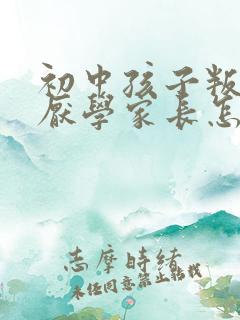 初中孩子叛
厌學家長怎
志摩時緒
未经同意禁止转载